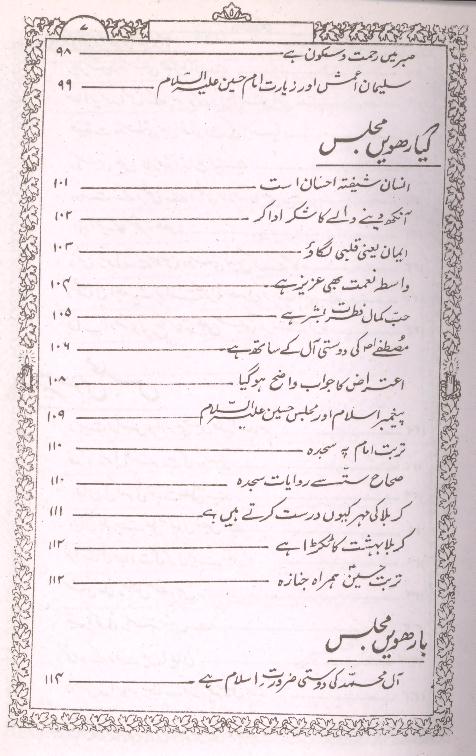 ۷
صبر میں رحمت و سکون ہے ۹۸
سلیمان اعمش اور زیارت امام حسین علیہ السلام ۹۹
گیارھویں مجلس
انسان شیفتہ احسان است ۱۰۱
آنکھ دینے والے کا شکر ادا کر ۱۰۲
ایمان یعنی قلبی لگاؤ ۱۰۳
واسطہ نعمت بھی عزیز ہے ۱۰۴
حبّ کمال فطرت بشر ہے ۱۰۵
مصطفےٰ ؐ کی دوستی آل کے ساتھ ہے ۱۰۶
اعتراض کا جواب واضح ہو گیا ۱۰۸
پیغمبر اسلام اور مجلس حسین علیہ السّلام ۱۰۹
تربت امام پہ سجدہ ۱۱۰
صحاح ستّہ سے روایات سجدہ ۱۱۰
کربلا کی مہر کیوں درست کرتے ہیں ہے ۱۱۱
کربلا بہشت کا ٹکڑا ہے ۱۱۲
تربت حسین ؑ ہمراہ جنازہ ۱۱۲
بارھویں مجلس
آل محمّد کی دوستی ضرورت اسلام ہے ۱۱۴